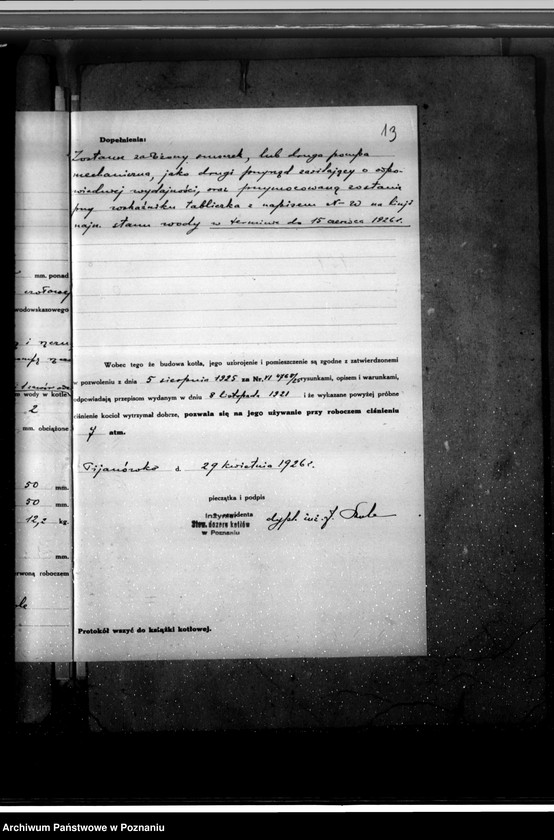 13
Dopełnienia:
Zostanie założony smoczek, lub druga pompa
mechaniczna, jako drugi przyrząd zasilający o odpo-
wiedniej wydajności, oraz przymocowaną zostanie
przy wskaźniku tabliczka z napisem N-W na linji
najn. stanu wody w terminie do 15 czerwca 1926 r.
mm. ponad
wodowskazowego
wody w kotle
2
mm. obciążone
50 mm.
50 mm.
12,2 kg.
mm.
roboczem
Wobec tego że budowa kotła, jego uzbrojenie i pomieszczenie są zgodne z zatwierdzonemi
w pozwoleniu z dnia 5 sierpnia 1925 za Nr. rysunkami, opisem i warunkami,
odpowiadają przepisom wydanym w dniu 8 listopada 1921 i że wykazane powyżej próbne
ciśnienie kocioł wytrzymał dobrze, pozwala się na jego używanie przy roboczem ciśnieniu
7 atm.
d. 29 kwietnia 1926 r.
pieczątka i podpis
Stow. dozoru kotłów
w Poznaniu
dypl. inż. J.
Protokół wszyć do książki kotłowej.
Archiwum Państwowe w Poznaniu